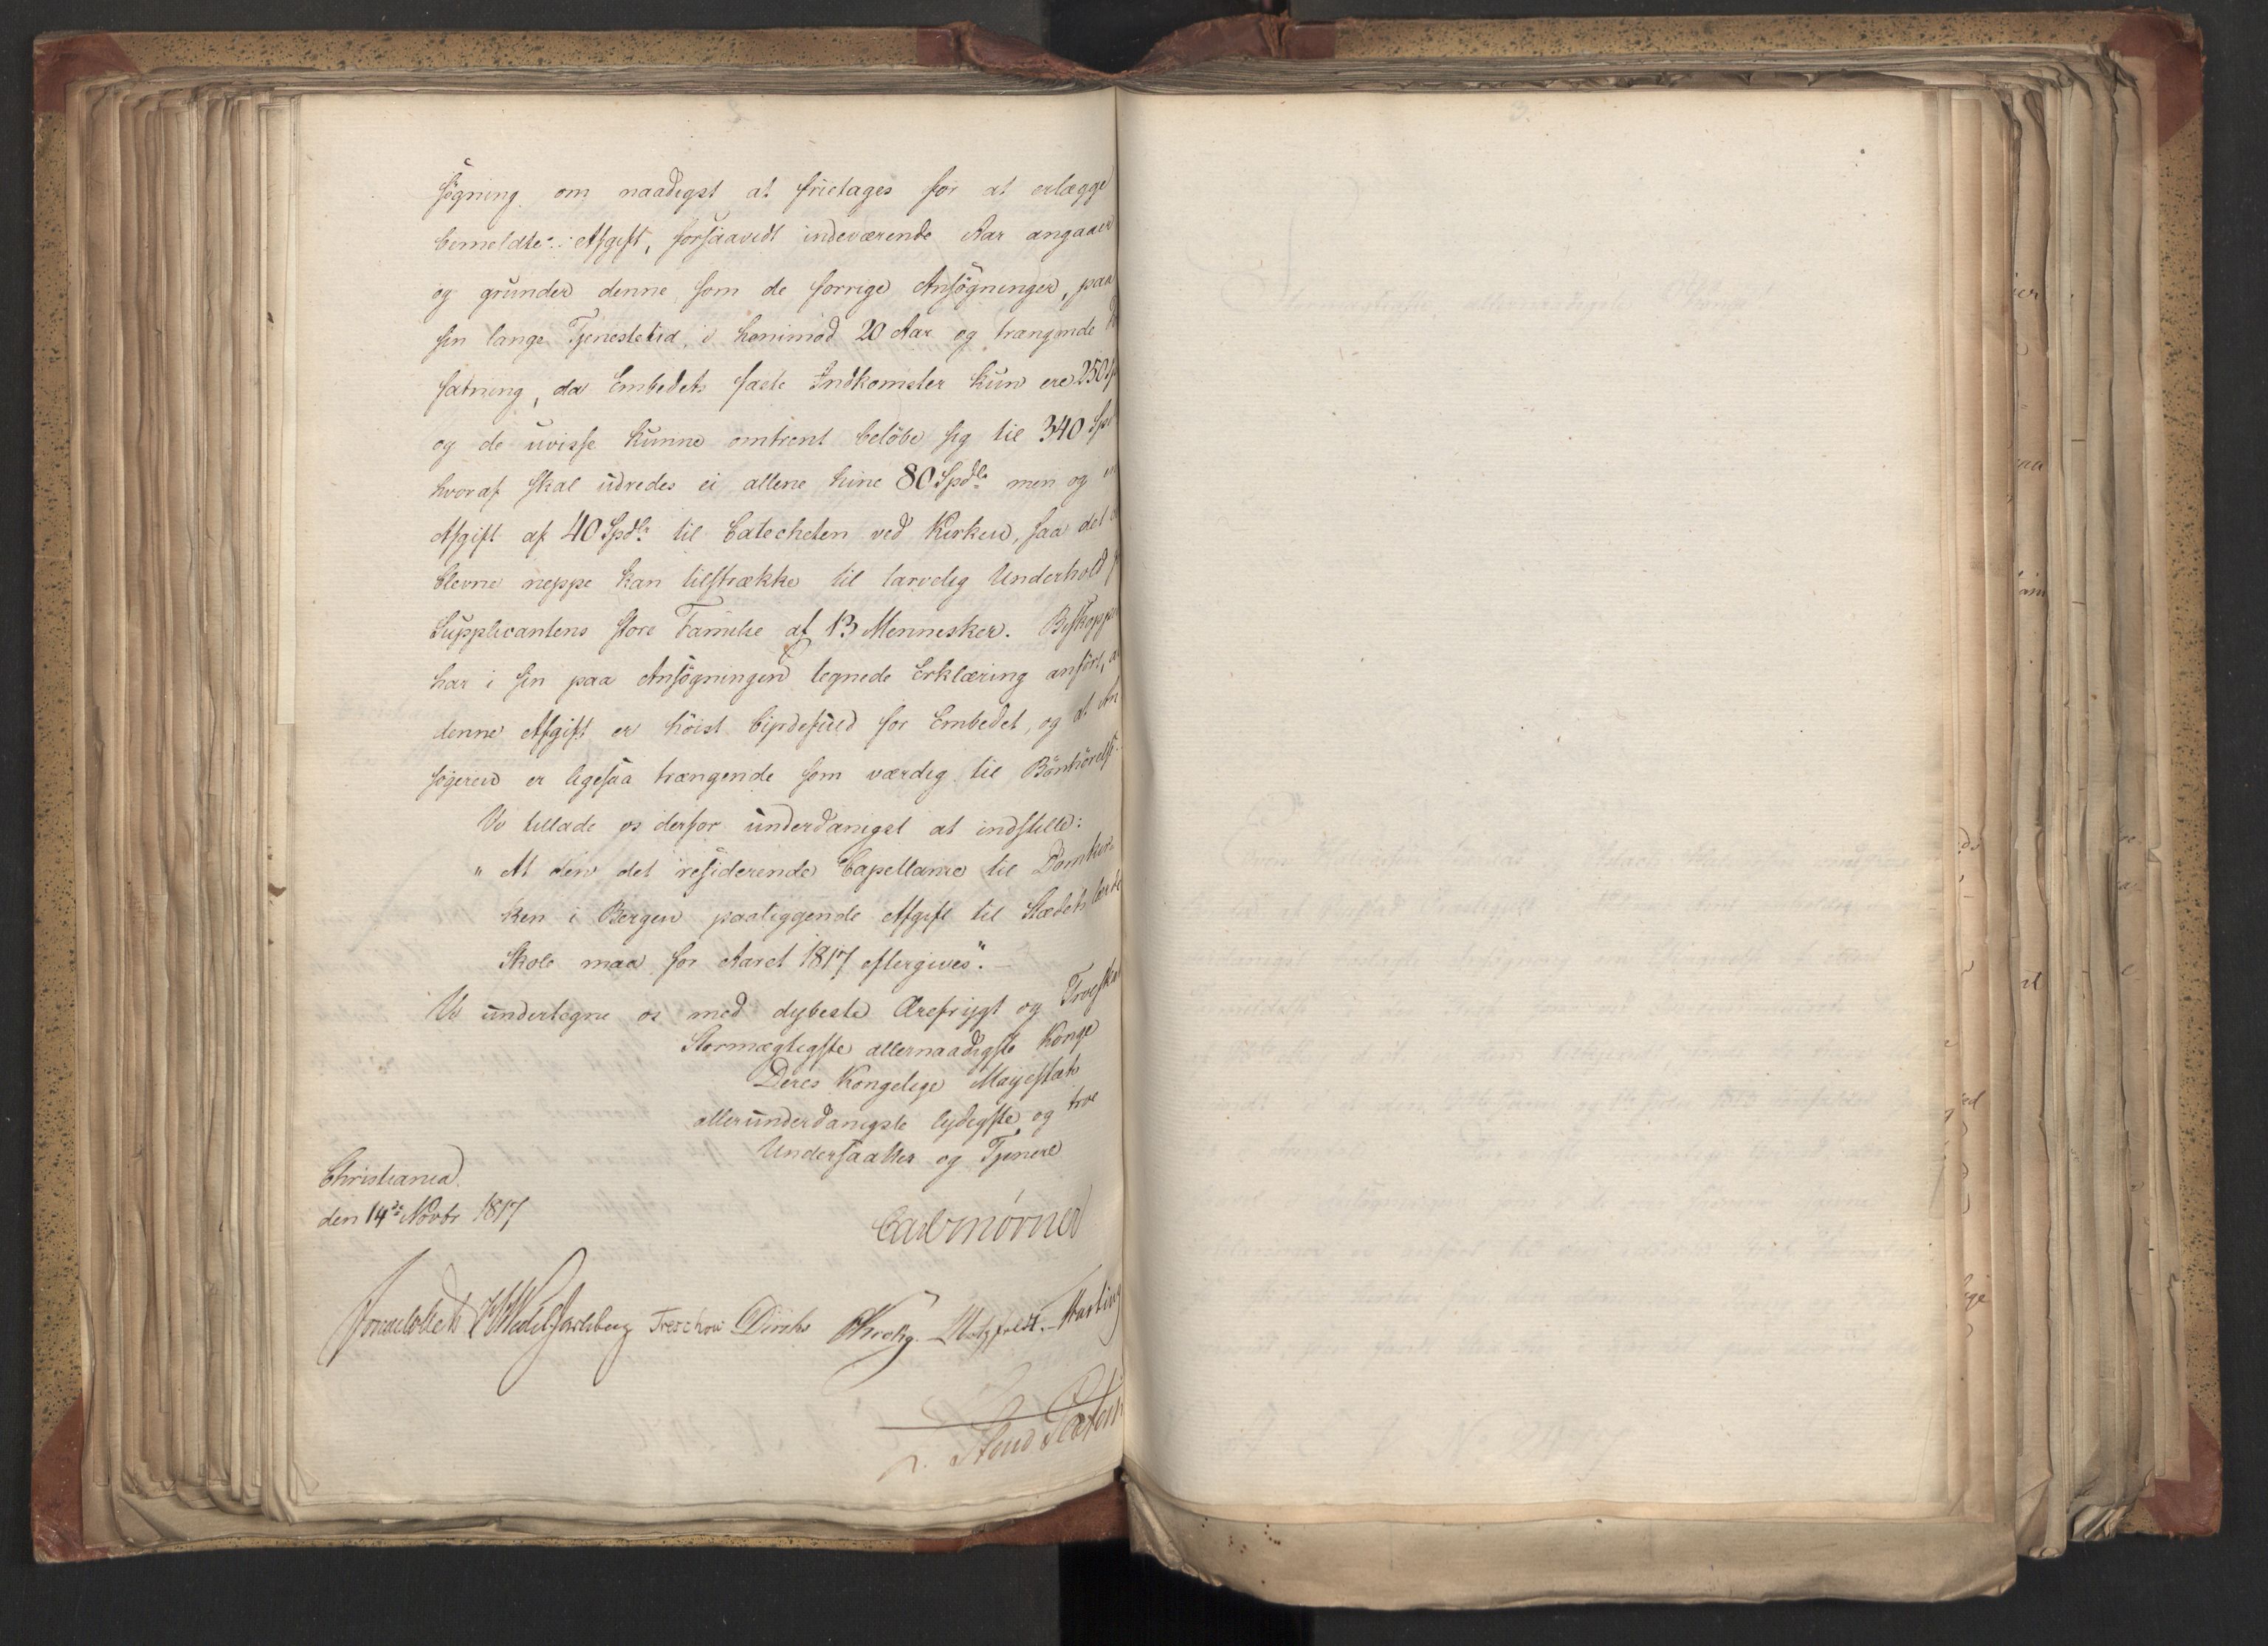 søgning om naadigst at fritages for at erlægge
bemeldte Afgift, forsaavidt indeværende Aar angaaer
og grunder denne som de forrige Ansøgninger, paa
sin lange Tjenestetid, i henimod 20 Aar og trængende
fatning, da Embedets faste Indkomster kun ere 250
og de uvisse kunne omtrent beløbe sig til 340 Spd
hvoraf skal udredes ei allene hine 80 Spdlr men og en
Afgift af 40 Spdlr til Catecheten ved Kirken, saa det
blevne neppe kan tilstrække til tarvelig Underhold
Supplicantens store Familie af 13 Mennesker. Biskoppen
har i sin paa Ansøgningen tegnede Erklæring anført, at
denne Afgift er høist byrdefuld for Embedet, og at An
søgeren er ligesaa trængende som værdig til Bønhørelse.
Vi tillade os derfor underdanigst at indstille:
" At den det residerende Capellanie til Domkir
ken i Bergen paaliggende Afgift til Stædets lærde
Skole maa for Aaret 1817 eftergives".
Vi undertegne os med dybeste Ærefrygt og Troeskab
Stormægtigste allernaadigste Konge
Deres Kongelige Majestæts
allerunderdanigste lydigste og troe
Undersaatter og Tjenere
Christiania
den 14de Novbr 1817
Carl Mörner
Sommerhielm HWedel Jarlsberg Treschow Diriks CKrohg. Motzfeldt. Hasting
Steud Platou
3.